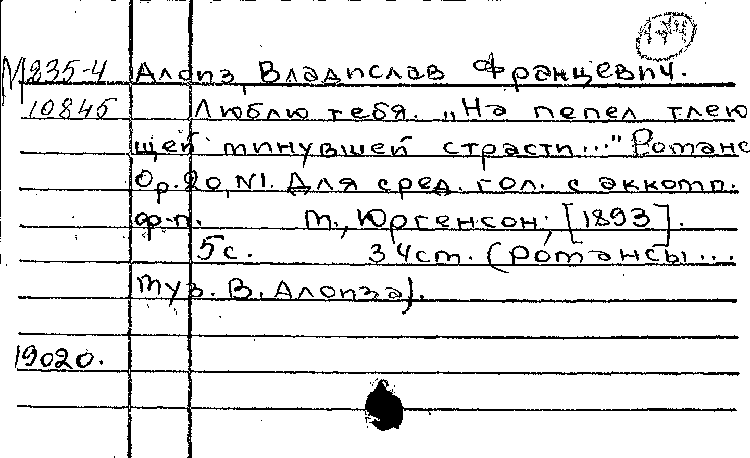 174
М235-4 Алоиз, Владислав Францевич.
10845 Люблю тебя. „На пепел тлею
щей минувшей страсти..." Романс
Op.20, N1. Для сред. гол. с аккомп.
ф-п. М., Юргенсон, [1893].
5 с. 34 см. (Романсы...
муз. В. Алоиза).
19020.